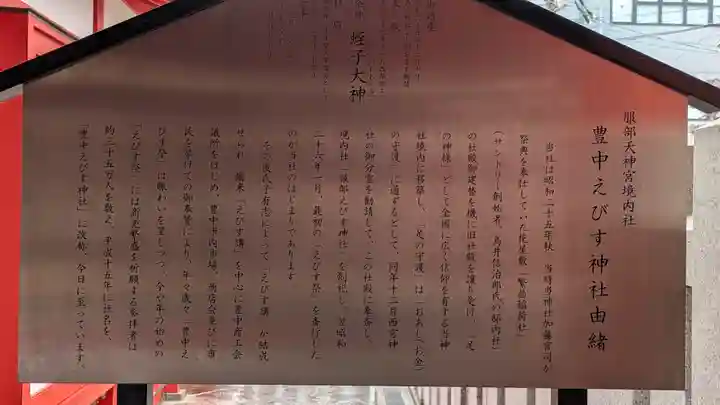 服部天神宮境内社
豊中えびす神社由緒
当社は昭和二十五年秋、当時当神社加藤宮司が
祭典を奉仕していた佐屋敷「繁昌稲荷社」
(サントリー創始者、鳥井信治郎氏の邸内社)
の社殿御建替を機に旧社殿を譲り受け、「足
の神様」として全国に広く信仰を有する当神
社境内に移築し、「足の守護」は「おあし(お金)
の守護」に通ずるとして、同年十二月西宮神
社の御分霊を勧請して、この社殿に奉斎し、
境内社「服部えびす神社」を創祀し、翌昭和
二十六年一月、最初の「えびす祭」を斎行した
のが当社のはじまりであります
その後氏子有志によって「えびす講」が結成
せられ、爾来「えびす講」を中心に豊中商工会
議所をはじめ、豊中市内市場、商店会並びに市
民を挙げての御奉賛により、年々歳々「豊中え
びす祭」は賑わいを呈しつつ、今や年の始めの
「えびす祭」には商売繁盛を祈願する参拝者は
約三十五万人を数え、平成十五年に社名を、
「豊中えびす神社」に改称、今日に至っています。
蛭子大神